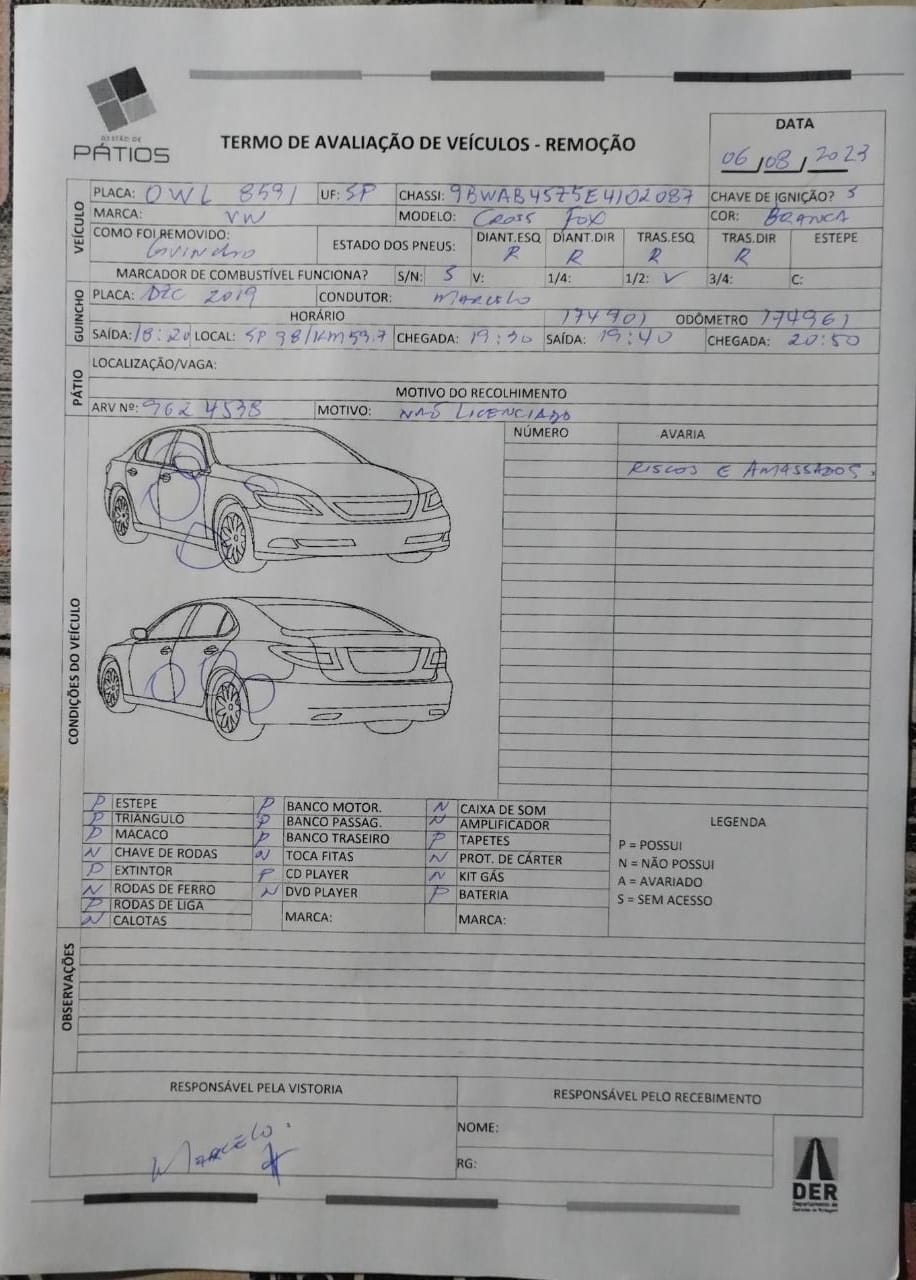 GESTÃO DE
PÁTIOS
TERMO DE AVALIAÇÃO DE VEÍCULOS - REMOÇÃO
DATA
06/08/2023
VEÍCULO
PLACA: OWL 8591 UF: SP CHASSI: 9BWAB45Z5E4102087 CHAVE DE IGNIÇÃO? S
MARCA: VW MODELO: CROSS FOX COR: BRANCA
COMO FOI REMOVIDO: GUINCHO ESTADO DOS PNEUS: DIANT.ESQ R DIANT.DIR R TRAS.ESQ R TRAS.DIR R ESTEPE
MARCADOR DE COMBUSTÍVEL FUNCIONA? S/N: S V: 1/4: 1/2: ✓ 3/4: C:
GUINCHO
PLACA: DZC 2019 CONDUTOR: MARCELO
HORÁRIO 174901 ODÔMETRO 174961
SAÍDA: 18:20 LOCAL: SP 98/KM 53,7 CHEGADA: 19:30 SAÍDA: 19:40 CHEGADA: 20:50
PÁTIO
LOCALIZAÇÃO/VAGA:
MOTIVO DO RECOLHIMENTO
ARV Nº: 9624538 MOTIVO: NÃO LICENCIADO
CONDIÇÕES DO VEÍCULO
NÚMERO AVARIA
RISCOS E AMASSADOS.
P ESTEPE P BANCO MOTOR. N CAIXA DE SOM
P TRIÂNGULO P BANCO PASSAG. N AMPLIFICADOR
P MACACO P BANCO TRASEIRO P TAPETES
N CHAVE DE RODAS N TOCA FITAS N PROT. DE CÁRTER
P EXTINTOR P CD PLAYER N KIT GÁS
N RODAS DE FERRO N DVD PLAYER P BATERIA
P RODAS DE LIGA MARCA: MARCA:
N CALOTAS
LEGENDA
P = POSSUI
N = NÃO POSSUI
A = AVARIADO
S = SEM ACESSO
OBSERVAÇÕES
RESPONSÁVEL PELA VISTORIA RESPONSÁVEL PELO RECEBIMENTO
MARCELO
NOME:
RG:
DER
Departamento de
Estradas de Rodagem